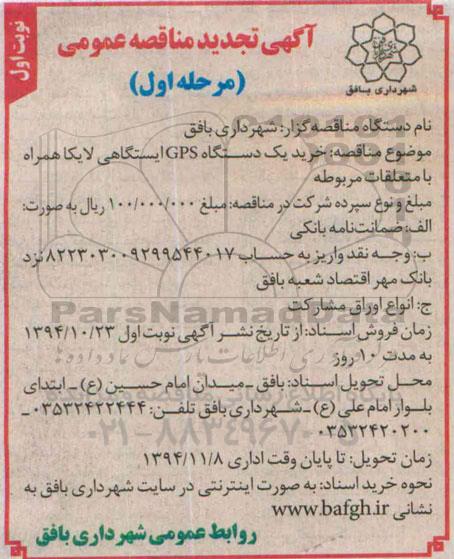 نوبت اول
آگهی تجدید مناقصه عمومی
(مرحله اول)
شهرداری بافق
نام دستگاه مناقصه گزار: شهرداری بافق
موضوع مناقصه: خرید یک دستگاه GPS ایستگاهی لایکا همراه
با متعلقات مربوطه
مبلغ و نوع سپرده شرکت در مناقصه: مبلغ ۱۰۰/۰۰۰/۰۰۰ ریال به صورت:
الف: ضمانت‌نامه بانکی
ب: وجه نقد واریز به حساب ۸۲۲۳۰۳۰۰۹۲۹۹۵۴۴۰۱۷ نزد
بانک مهر اقتصاد شعبه بافق
ج: انواع اوراق مشارکت
ParsNamadData
زمان فروش اسناد: از تاریخ نشر آگهی نوبت اول ۱۳۹۴/۱۰/۲۳
به مدت ۱۰ روز
محل تحویل اسناد: بافق - میدان امام حسین (ع) - ابتدای
بلوار امام علی (ع) - شهرداری بافق تلفن: ۰۳۵۳۲۴۲۲۴۴۴-
۰۳۵۳۲۴۲۰۲۰۰
۰۲۱-۸۸۳۴۹۶۷۰-۵
زمان تحویل: تا پایان وقت اداری ۱۳۹۴/۱۱/۸
نحوه خرید اسناد: به صورت اینترنتی در سایت شهرداری بافق به
نشانی www.bafgh.ir
روابط عمومی شهرداری بافق